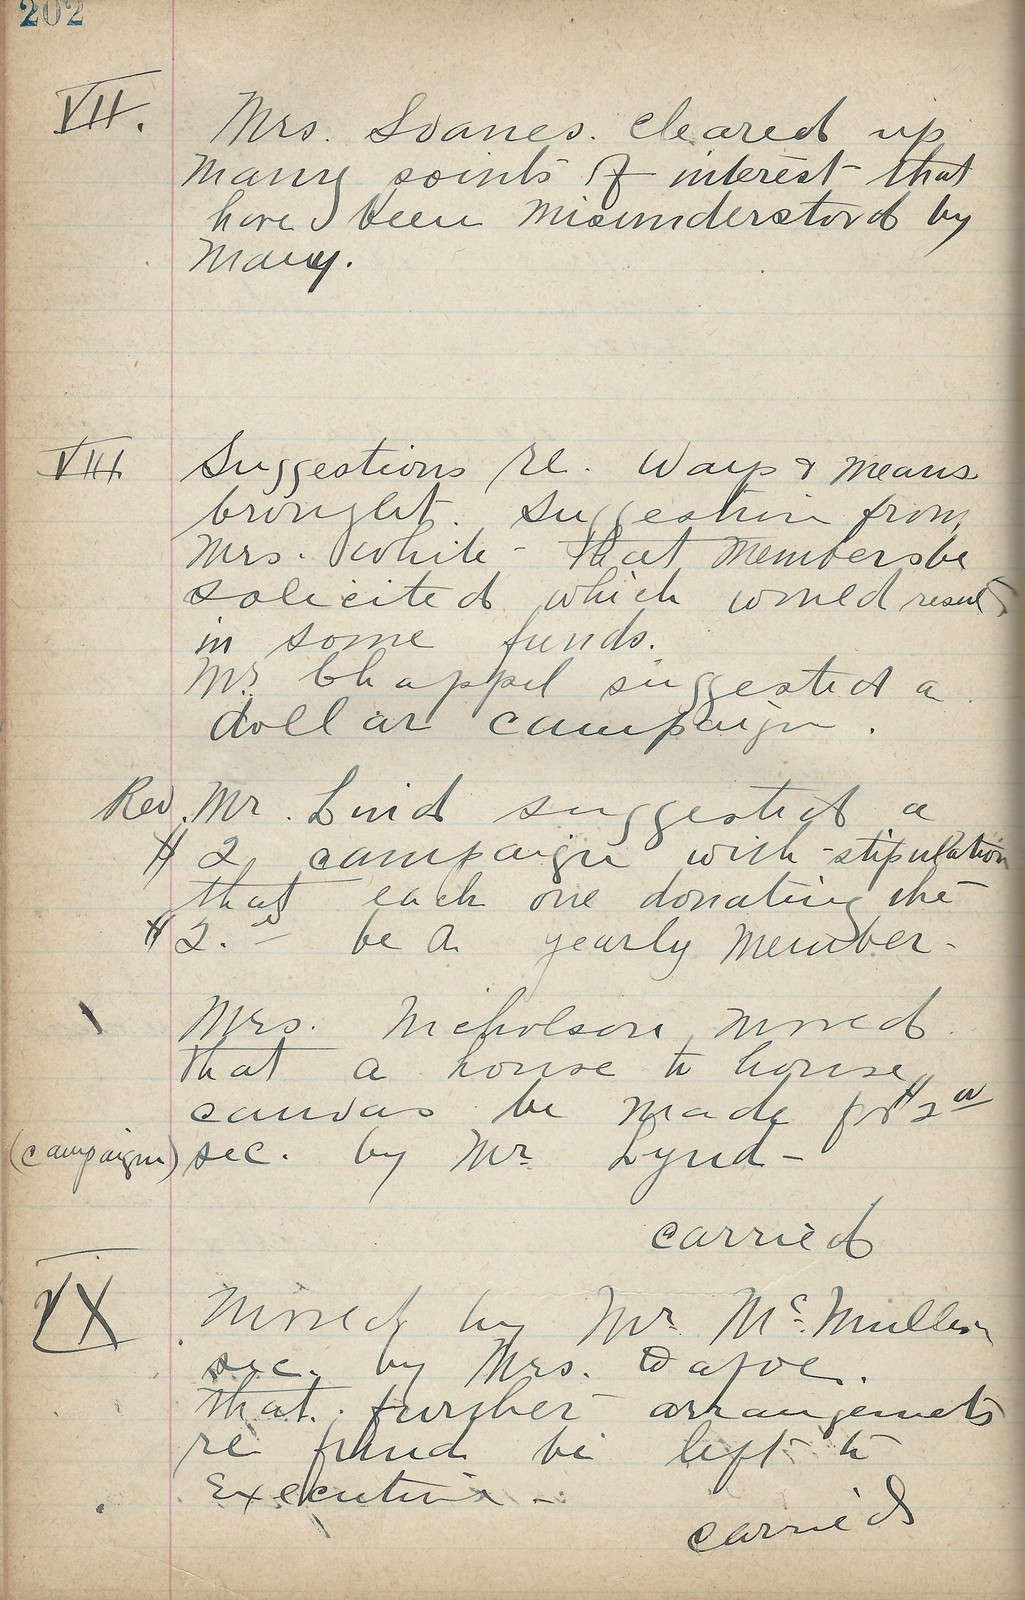 202
VII. Mrs. Soanes. cleared up
many points of interest that
have been misunderstood by
many.
VIII Suggestions re. Ways & means
brought. Suggestion from
Mrs. White - that members be
solicited which would result
in some funds.
Mr. Chappel suggested a
dollar campaign.
Rev. Mr. Lind suggested a
$2 campaign with stipulation
that each one donating the
$2.00 be a yearly member -
Mrs. Nicholson moved
that a house to house
canvas be made for $2.00
(campaign) sec. by Mr. Lynd -
carried
IX Moved by Mr. McMullen
sec. by Mrs. Dafoe.
that further arrangements
re fund be left to
Executive -
carried